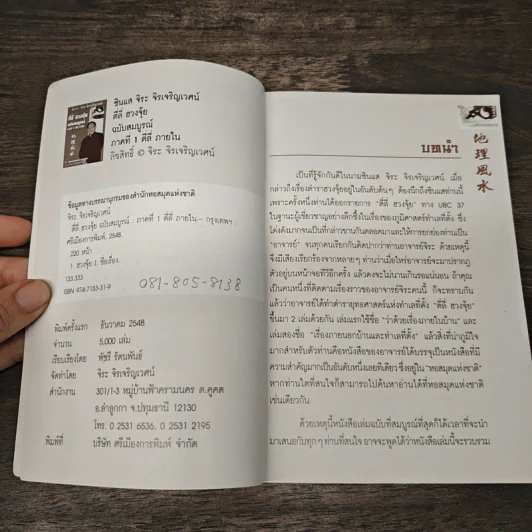 ซินแส จิระ จิรเจริญเวศน์
ตี่ลี่ ฮวงจุ้ย
ฉบับสมบูรณ์
ภาคที่ 1 ตี่ลี่ ภายใน
ลิขสิทธิ์ © จิระ จิรเจริญเวศน์
ข้อมูลทางบรรณานุกรมของสำนักหอสมุดแห่งชาติ
จิระ จิรเจริญเวศน์
ตี่ลี่ ฮวงจุ้ย ฉบับสมบูรณ์ : ภาคที่ 1 ตี่ลี่ ภายใน -- กรุงเทพฯ :
ศรีเมืองการพิมพ์, 2548.
220. หน้า
1. ฮวงจุ้ย I. ชื่อเรื่อง.
133.333
ISBN 974-7153-31-9
081-805-8138
พิมพ์ครั้งแรก ธันวาคม 2548
จำนวน 5,000 เล่ม
เรียบเรียงโดย พัชรี รัตนพันธ์
จัดทำโดย จิระ จิรเจริญเวศน์
สำนักงาน 301/1-3 หมู่บ้านฟ้าครามนคร ต.คูคต
อ.ลำลูกกา จ.ปทุมธานี 12130
โทร. 0 2531 6536, 0 2531 2195
พิมพ์ที่ บริษัท ศรีเมืองการพิมพ์ จำกัด
地理風水
บทนำ
เป็นที่รู้จักกันดีในนามซินแส จิระ จิรเจริญเวศน์ เมื่อ
กล่าวถึงเรื่องตำราฮวงจุ้ยอยู่ในอันดับต้นๆ ต้องนึกถึงซินแสท่านนี้
เพราะครั้งหนึ่งท่านได้ออกรายการ “ตี่ลี่ ฮวงจุ้ย” ทาง UBC 37
ในฐานะผู้เชี่ยวชาญอย่างลึกซึ้งในเรื่องของภูมิศาสตร์ทำเลที่ตั้ง ซึ่ง
โด่งดังมากจนเป็นที่กล่าวขานกันตลอดมาและให้การยกย่องท่านเป็น
“อาจารย์” จนทุกคนเรียกกันติดปากว่าท่านอาจารย์จิระ ด้วยเหตุนี้
จึงมีเสียงเรียกร้องจากหลายๆ ท่านว่าเมื่อไหร่อาจารย์จะมาปรากฏ
ตัวอยู่บนหน้าจอทีวีอีกครั้ง แล้วคงจะไม่นานเกินรอแน่นอน ถ้าคุณ
เป็นคนหนึ่งที่ติดตามเรื่องราวของอาจารย์จิระคนนี้ ก็จะทราบกัน
แล้วว่าอาจารย์ได้ทำตำรายุทธศาสตร์แห่งทำเลที่ตั้ง “ตี่ลี่ ฮวงจุ้ย”
ขึ้นมา 2 เล่มด้วยกัน เล่มแรกใช้ชื่อ “ว่าด้วยเรื่องภายในบ้าน” และ
เล่มสองชื่อ “เรื่องภายนอกบ้านและทำเลที่ตั้ง” แล้วสิ่งที่น่าภูมิใจ
มากสำหรับตัวท่านคือหนังสือของอาจารย์ได้บรรจุเป็นหนังสือที่มี
ความสำคัญมากเป็นอันดับหนึ่งเลยทีเดียว ซึ่งอยู่ใน “หอสมุดแห่งชาติ”
หากท่านใดที่สนใจก็สามารถไปค้นหาอ่านได้ที่หอสมุดแห่งชาติ
เช่นเดียวกัน
ด้วยเหตุนี้หนังสือเล่มฉบับที่สมบูรณ์ที่สุดก็ได้เวลาที่จะนำ
มาเสนอกับทุกๆ ท่านที่สนใจ อาจจะพูดได้ว่าหนังสือเล่มนี้จะรวบรวม